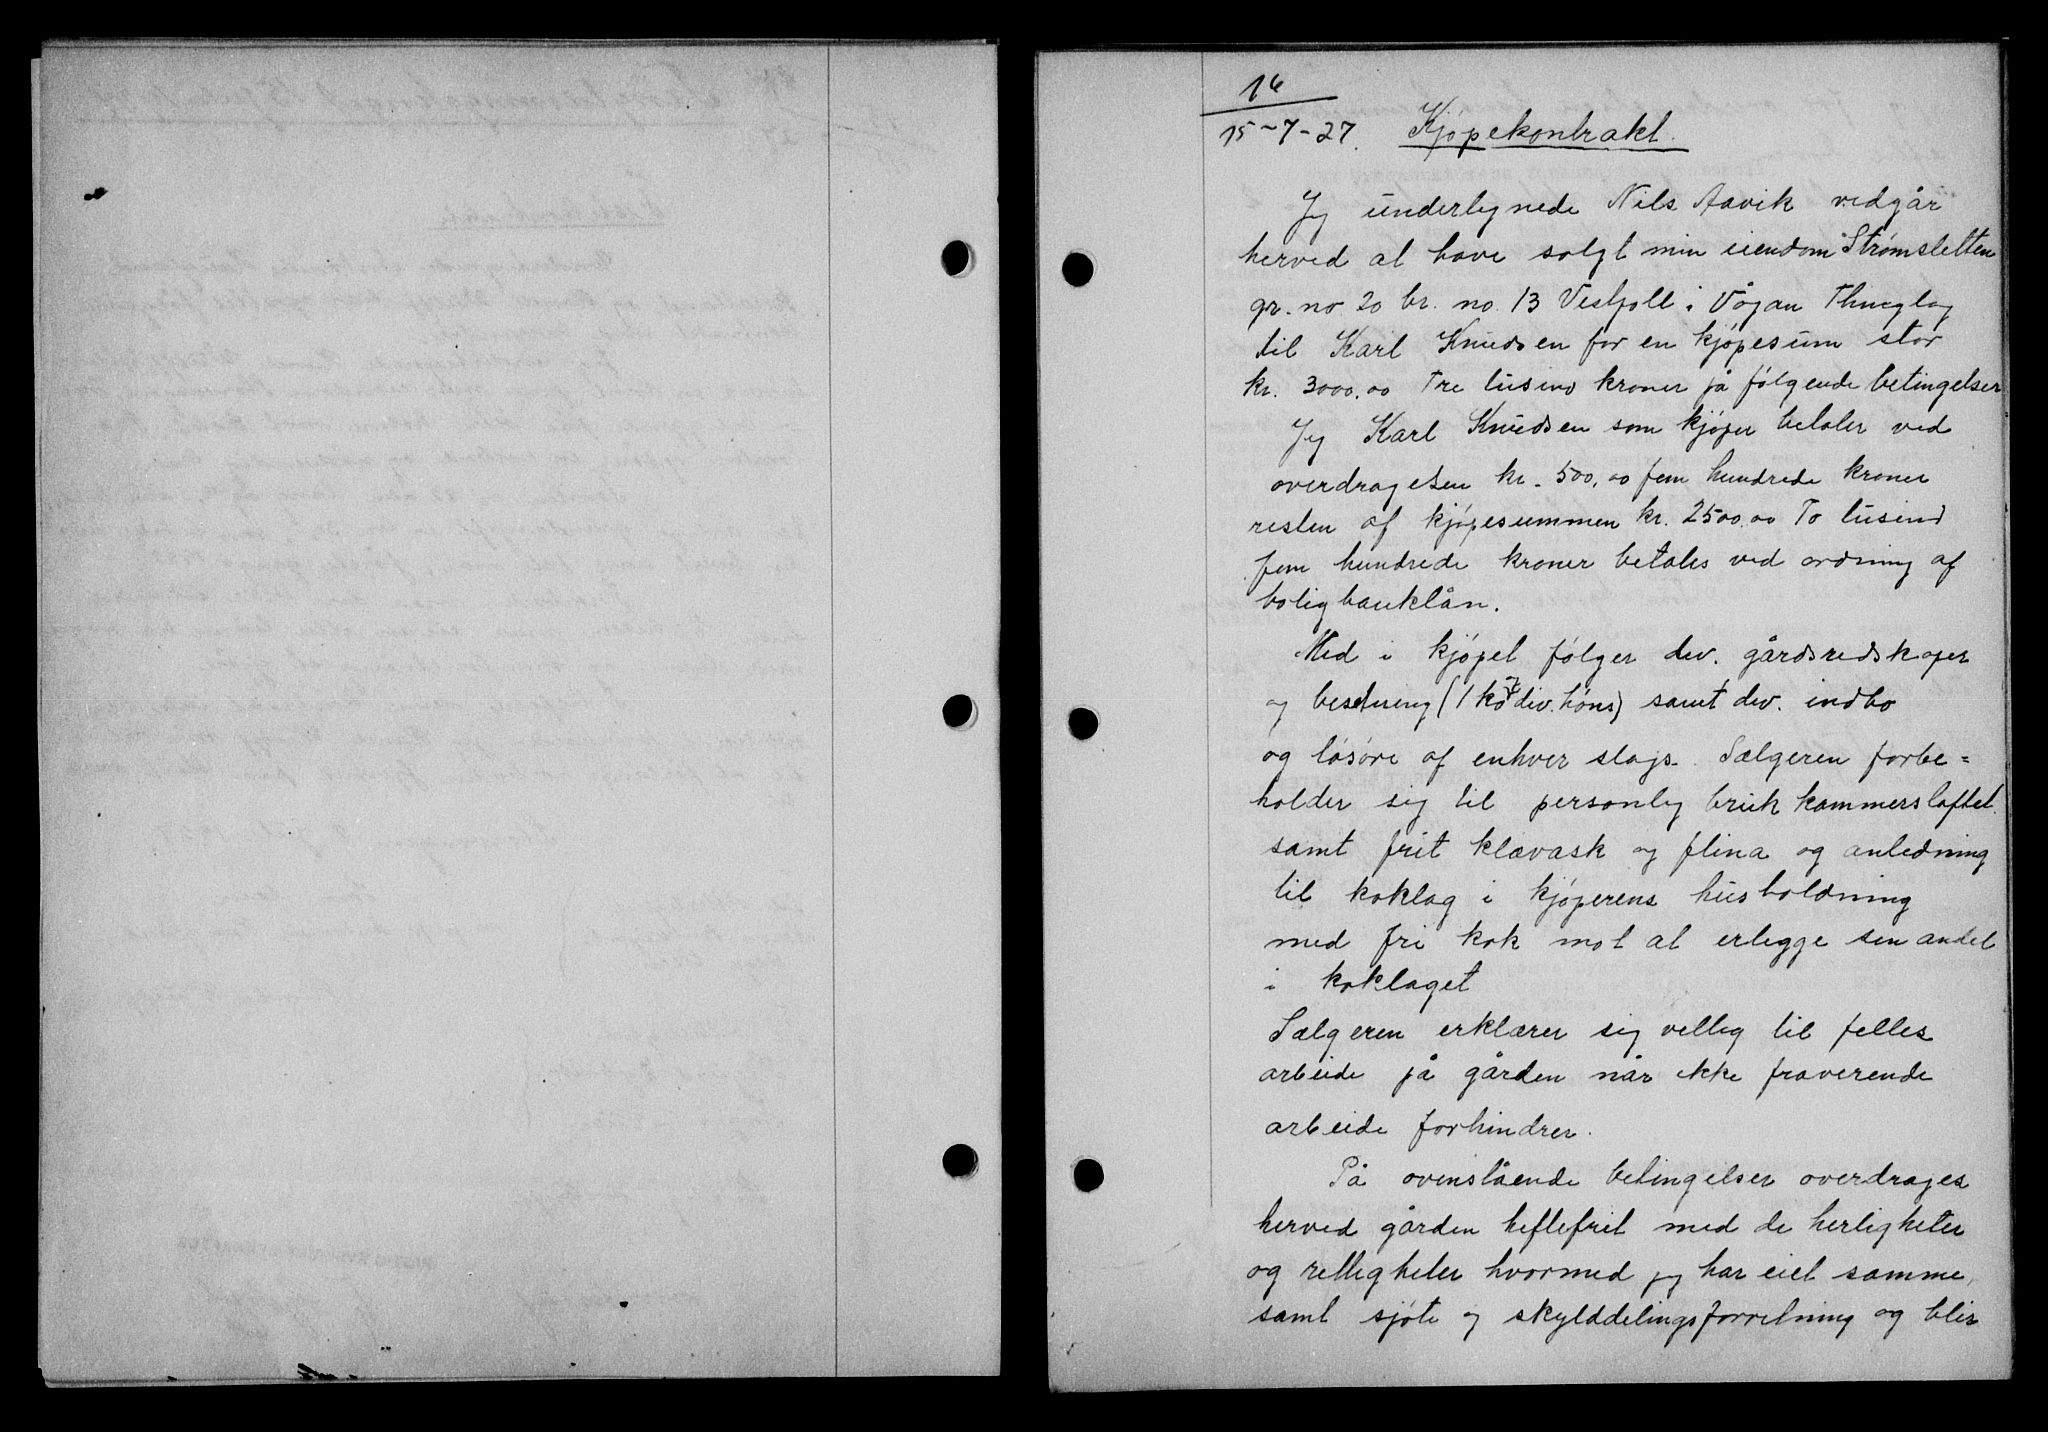 16
15-7-27. Kjøpekontrakt.
Jeg undertegnede Nils Aavik vedgår
herved at have solgt min eiendom Strømsletten
gr. no 20 br. no. 13 Vestpoll i Vågan Thinglag
til Karl Knudsen for en kjøpesum stor
kr. 3000.00 Tre tusind kroner på følgende betingelser
Jeg Karl Knudsen som kjøper betaler ved
overdragelsen kr. 500,00 fem hundrede kroner
resten af kjøpesummen kr. 2500.00 To tusind
fem hundrede kroner betales ved ordning af
boligbanklån.
Med i kjøpet følger div. gårdsredskaper
og besetning (1 ko & div. høns) samt div. indbo
og løsøre af enhver slags. Sælgeren forbe=
holder sig til personlig bruk kammersloftet
samt frit klævask og flina og anledning
til koklag i kjøperens husholdning
med fri kok mot at erlegge sin andel
i koklaget
Sælgeren erklærer sig villig til felles
arbeide på gården når ikke fraverende
arbeide forhindrer.
På ovenstående betingelser overdrages
herved gården heftefrit med de herligheter
og rettigheter hvormed jeg har eiet samme,
samt sjøte og skylddelingsforretning og blir